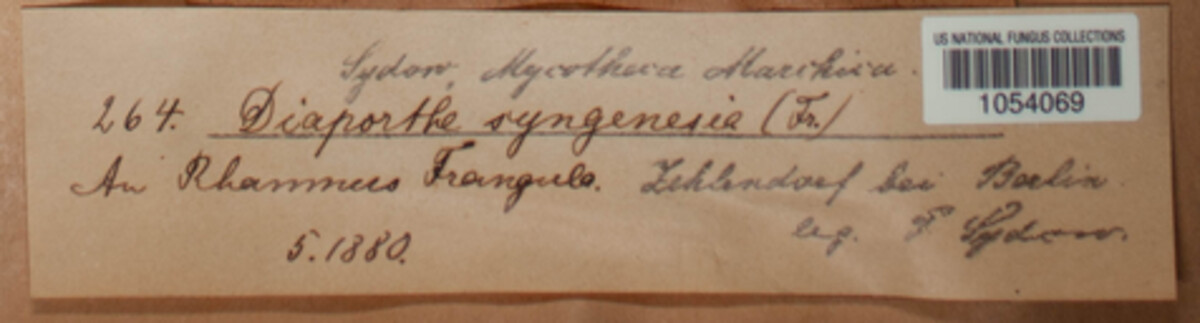 Sydow, Mycotheca Marchica.
US NATIONAL FUNGUS COLLECTIONS
1054069
264. Diaporthe syngenesia (Fr.)
An Rhamnus Frangula. Zehlendorf bei Berlin.
leg. P. Sydow.
5.1880.